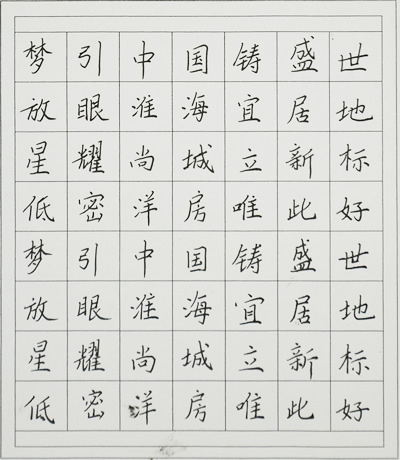 梦引中国铸盛世
放眼淮海宜居地
星耀尚城立新标
低密洋房唯此好
梦引中国铸盛世
放眼淮海宜居地
星耀尚城立新标
低密洋房唯此好